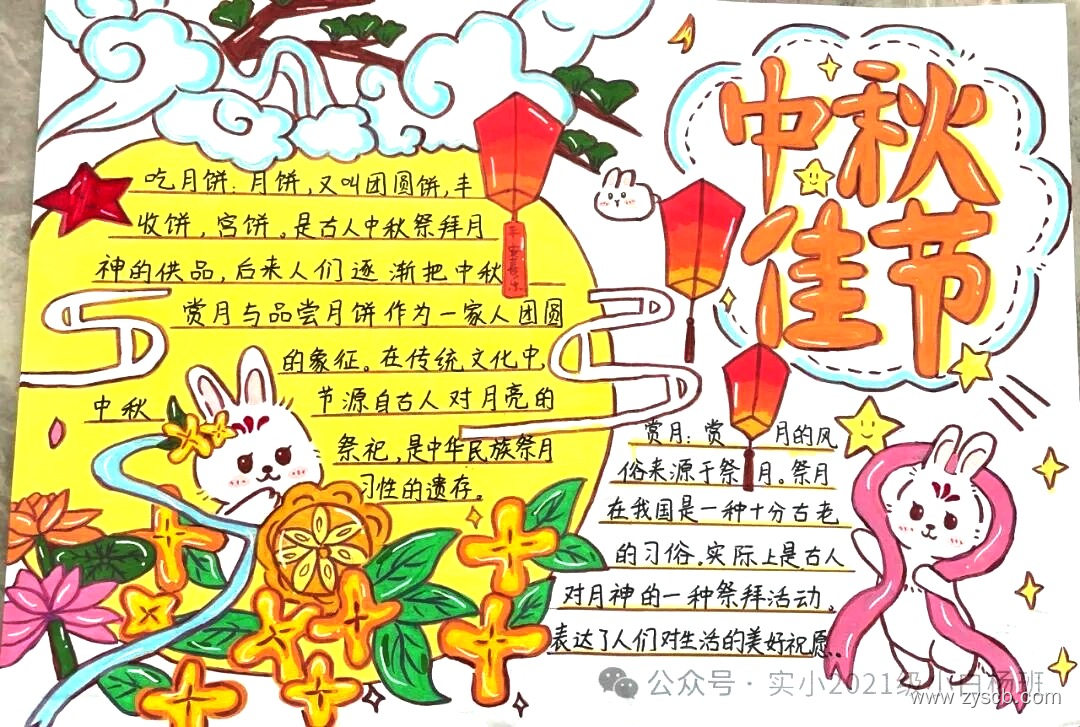 中秋
佳节
吃月饼：月饼，又叫团圆饼，丰
收饼，宫饼。是古人中秋祭拜月
神的供品，后来人们逐渐把中秋
赏月与品尝月饼作为一家人团圆
的象征。在传统文化中，
中秋节源自古人对月亮的
祭祀，是中华民族祭月
习性的遗存。
平安喜乐
赏月：赏月的风
俗来源于祭月。祭月
在我国是一种十分古老
的习俗。实际上是古人
对月神的一种祭拜活动。
表达了人们对生活的美好祝愿
公众号·实小2021级小白杨班
www.zyscb.com